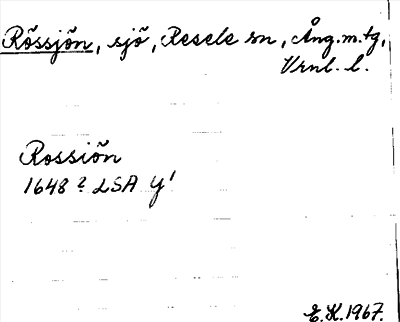 Rössjön, sjö, Resele sn, Ång.m.tg,
Vrnl. l.
Rossiön
1648? LSA Y'
E.K. 1967.